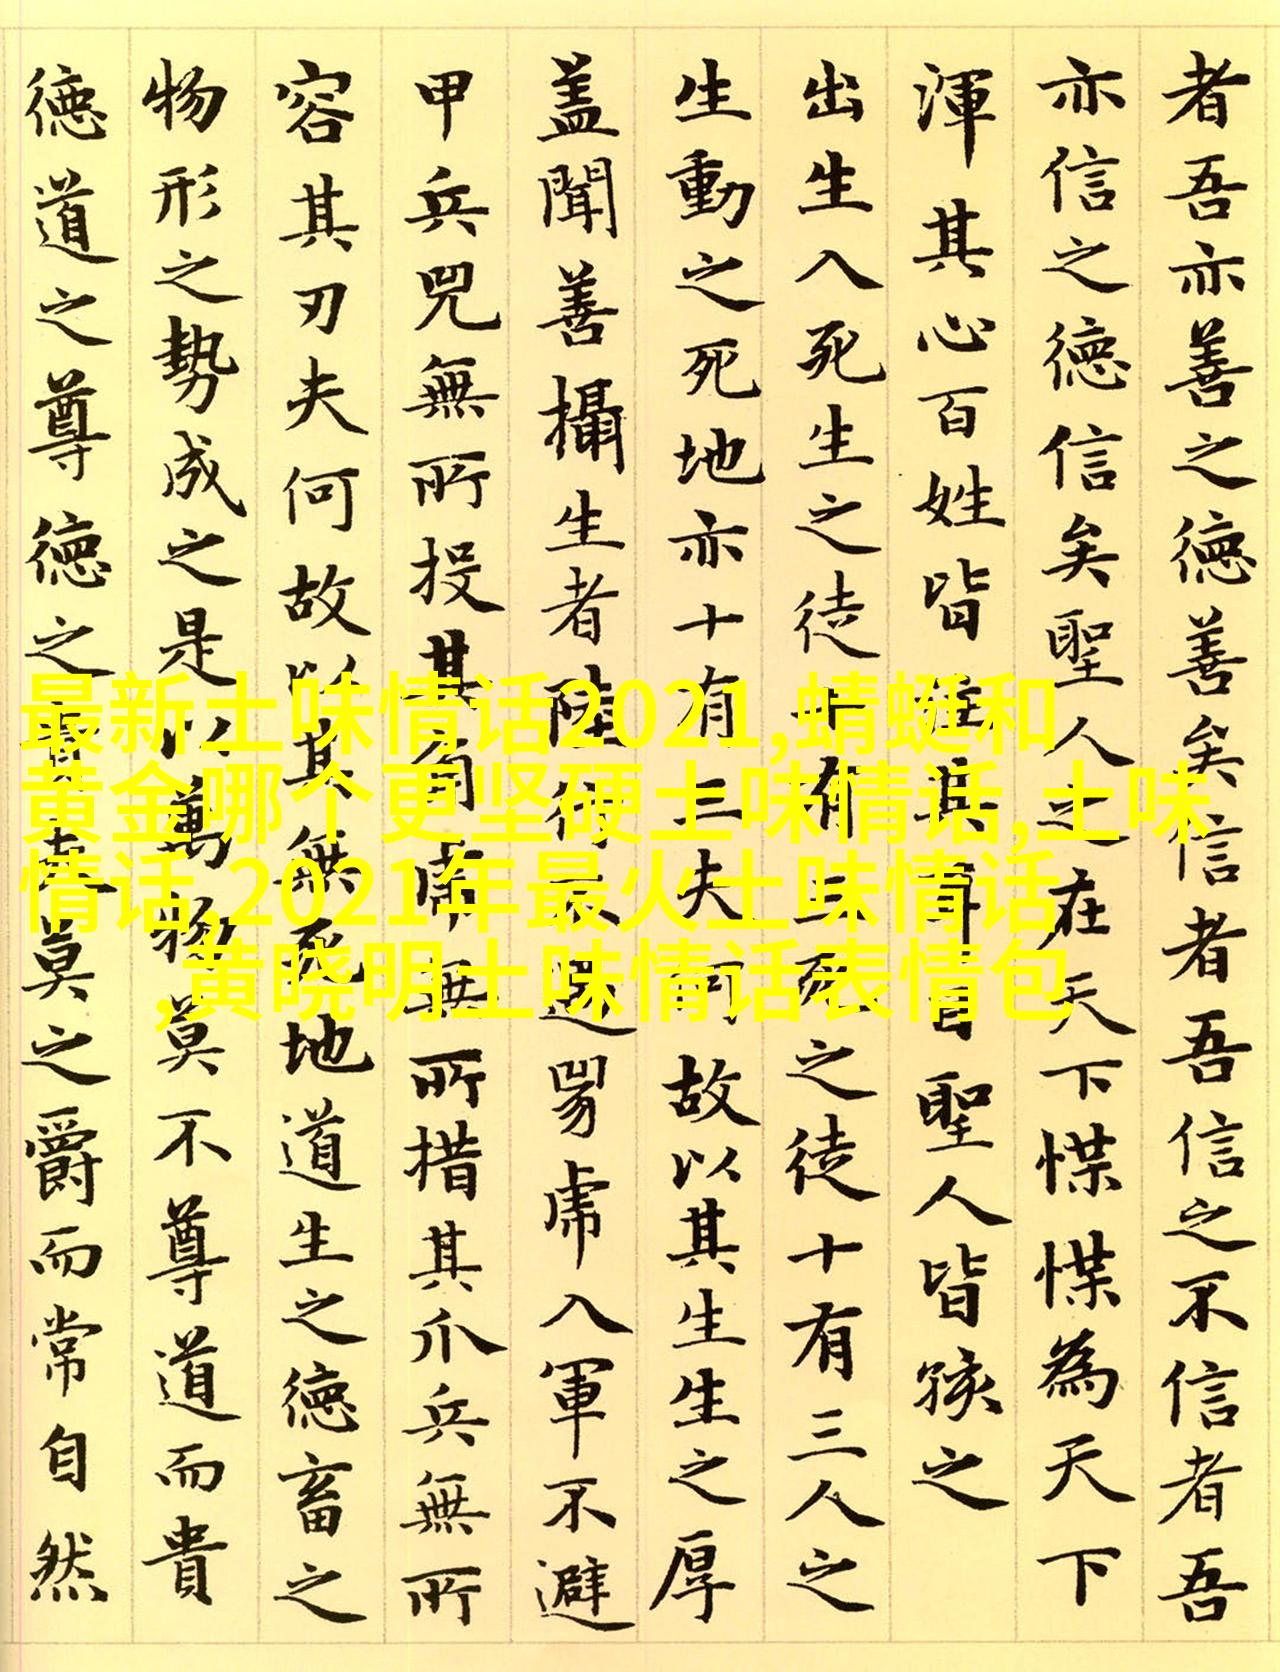 者吾亦善之德善矣信者吾信之不信者吾
亦信之德信矣聖人之在天下惵惵為天下
渾其心百姓皆其耳目聖人皆孩之
出生入死生之徒十有三死之徒十有三人之
生動之死地亦十有三夫何故以其生生之厚
蓋聞善攝生者陸行不遇兕虎入軍不避
甲兵兕無所投其角虎無所措其爪兵無所
容其刃夫何故以其無死地道生之德畜之
物形之勢成之是以萬物莫不尊道而貴
德道之尊德之貴夫莫之爵而常自然
最新土味情话2021,蜻蜓和
黄金哪个更坚硬土味情话,土味
情话,2021年最火土味情话
,黄晓明土味情话表情包